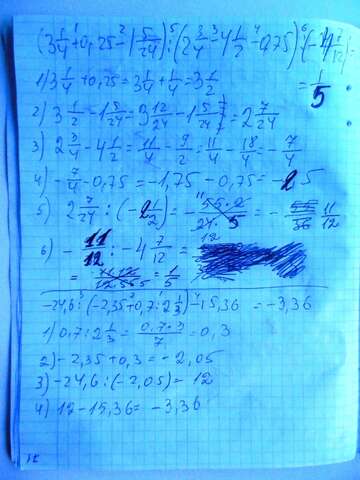 (3 1/4 + 0,25 - 1 5/24) : (2 3/4 - 4 1/2 - 0,75) : (-4 7/12) =
= 1/5
1) 3 1/4 + 0,25 = 3 1/4 + 1/4 = 3 1/2
2) 3 1/2 - 1 5/24 = 3 12/24 - 1 5/24 = 2 7/24
3) 2 3/4 - 4 1/2 = 11/4 - 9/2 = 11/4 - 18/4 = - 7/4
4) - 7/4 - 0,75 = -1,75 - 0,75 = -2,5
5) 2 7/24 : (-2 1/2) = - 55·2/24·5 = - 11/12
6) - 11/12 : -4 7/12 =
= 11·12/12·55 = 1/5
-24,6 : (-2,35 + 0,7 : 2 1/3) - 15,36 = -3,36
1) 0,7 : 2 1/3 = 0,7·3/7 = 0,3
2) -2,35 + 0,3 = -2,05
3) -24,6 : (-2,05) = 12
4) 12 - 15,36 = -3,36